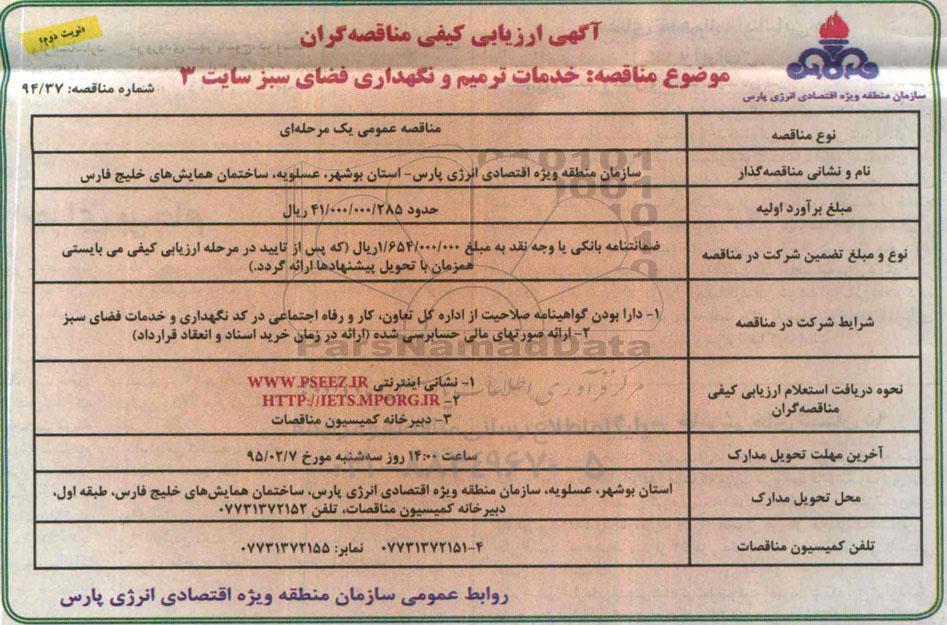 «نوبت دوم»
آگهی ارزیابی کیفی مناقصه‌گران
موضوع مناقصه: خدمات ترمیم و نگهداری فضای سبز سایت ۳
شماره مناقصه: ۹۴/۳۷
سازمان منطقه ویژه اقتصادی انرژی پارس
نوع مناقصه
مناقصه عمومی یک مرحله‌ای
نام و نشانی مناقصه‌گذار
سازمان منطقه ویژه اقتصادی انرژی پارس- استان بوشهر، عسلویه، ساختمان همایش‌های خلیج فارس
مبلغ برآورد اولیه
حدود ۴۱/۰۰۰/۰۰۰/۲۸۵ ریال
نوع و مبلغ تضمین شرکت در مناقصه
ضمانتنامه بانکی یا وجه نقد به مبلغ ۱/۶۵۴/۰۰۰/۰۰۰ریال (که پس از تایید در مرحله ارزیابی کیفی می بایستی
همزمان با تحویل پیشنهادها ارائه گردد.)
شرایط شرکت در مناقصه
۱- دارا بودن گواهینامه صلاحیت از اداره کل تعاون، کار و رفاه اجتماعی در کد نگهداری و خدمات فضای سبز
۲- ارائه صورتهای مالی حسابرسی شده (ارائه در زمان خرید اسناد و انعقاد قرارداد)
نحوه دریافت استعلام ارزیابی کیفی
مناقصه‌گران
۱- نشانی اینترنتی WWW.PSEEZ.IR
۲- HTTP://IETS.MPORG.IR
۳- دبیرخانه کمیسیون مناقصات
آخرین مهلت تحویل مدارک
ساعت ۱۴:۰۰ روز سه‌شنبه مورخ ۹۵/۰۲/۷
محل تحویل مدارک
استان بوشهر، عسلویه، سازمان منطقه ویژه اقتصادی انرژی پارس، ساختمان همایش‌های خلیج فارس، طبقه اول،
دبیرخانه کمیسیون مناقصات، تلفن ۰۷۷۳۱۳۷۲۱۵۲
تلفن کمیسیون مناقصات
۰۷۷۳۱۳۷۲۱۵۱-۴ نمابر: ۰۷۷۳۱۳۷۲۱۵۵
روابط عمومی سازمان منطقه ویژه اقتصادی انرژی پارس
ParsNamadData